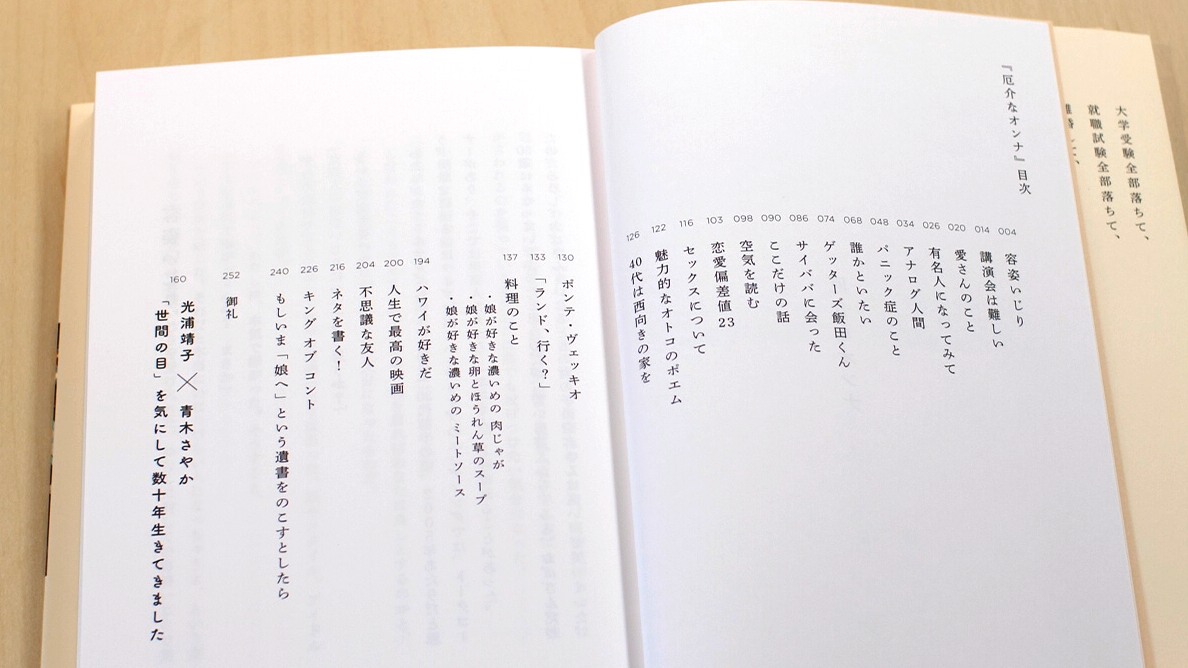 大学受験全部落ちて、
就職試験全部落ちて、
『厄介なオンナ』目次
004 容姿いじり
014 講演会は難しい
020 愛さんのこと
026 有名人になってみて
034 アナログ人間
048 パニック症のこと
068 誰かといたい
074 ゲッターズ飯田くん
086 サイババに会った
090 ここだけの話
098 空気を読む
103 恋愛偏差値23
116 セックスについて
122 魅力的なオトコのポエム
126 40代は西向きの家を
130 ポンテ・ヴェッキオ
133 「ランド、行く?」
137 料理のこと
・娘が好きな濃いめの 肉じゃが
・娘が好きな卵とほうれん草のスープ
・娘が好きな濃いめの ミートソース
194 ハワイが好きだ
200 人生で最高の映画
204 不思議な友人
216 ネタを書く!
226 キング オブ コント
240 もしいま「娘へ」という遺書をのこすとしたら
252 御礼
160 光浦靖子×青木さやか
「世間の目」を気にして数十年生きてきました